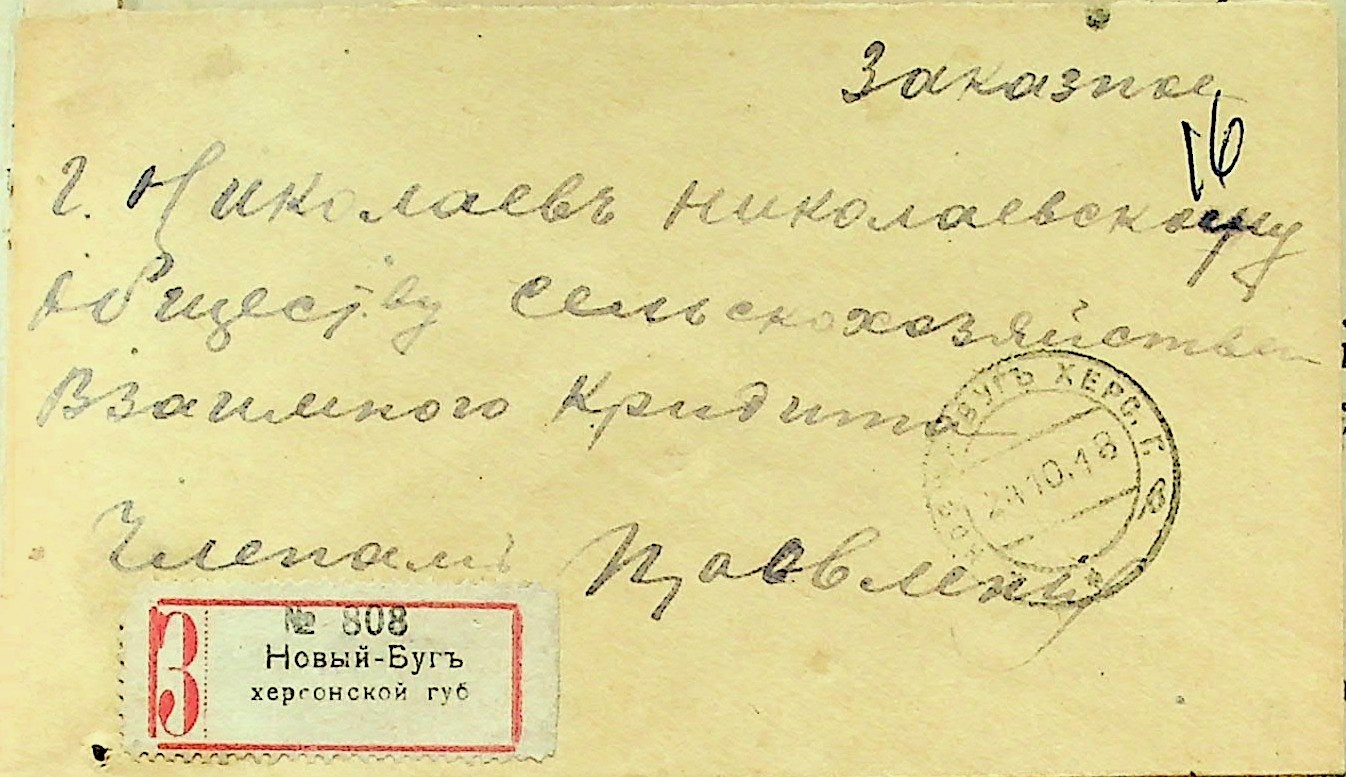 Заказное
16
г. Николаевъ Николаевскому
Обществу сельскохозяйствен
Взаимного Кридита
БУГЪ ХЕРС. Г.
10.18
Членамъ Правленія
З
№ 808
Новый-Бугъ
херсонской губ